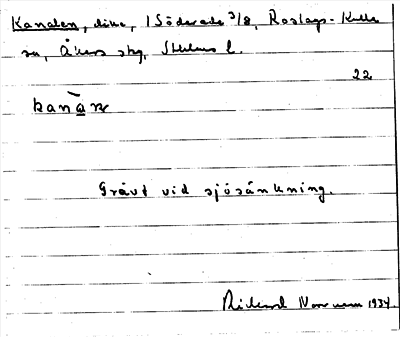 Kanalen, dike, i Söderede 3/8, Roslags-Kulla
sn, Åkers skg, Sthlms l.
22
kanὰ̲n
Grävt vid sjösänkning.
Rickard Norman 1934.